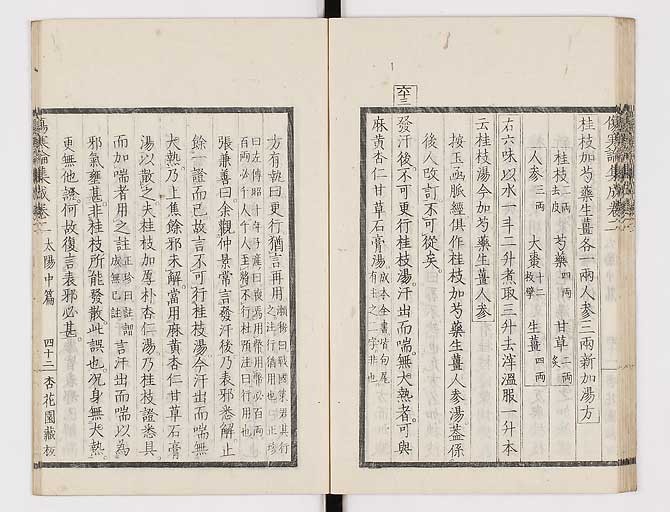 傷寒論集成卷二
桂枝加芍藥生薑各一兩人參三兩新加湯方
桂枝二兩去皮　芍藥四兩　甘草二兩炙
人參三兩　大棗十二枚擘　生薑四兩
右六味以水一斗二升煮取三升去滓溫服一升本
云桂枝湯今加芍藥生薑人參
按玉函脈經俱作桂枝加芍藥生薑人參湯蓋係
後人改訂不可從矣
六十三
發汗後不可更行桂枝湯汗出而喘無大熱者可與
麻黃杏仁甘草石膏湯
方有執曰更行猶言再用
張兼善曰余觀仲景常言發汗後乃表邪悉解止
餘一證而已故言不可行桂枝湯今汗出而喘無
大熱乃上焦餘邪未解當用麻黃杏仁甘草石膏
湯以散之夫桂枝加厚朴杏仁湯乃桂枝證悉具
而加喘者用之註成無己註言汗出而喘以為
邪氣壅甚非桂枝所能發散此誤也况身無大熱
更無他證何故復言表邪必甚
傷寒論集成卷二　太陽中篇　四十二　杏花園藏板